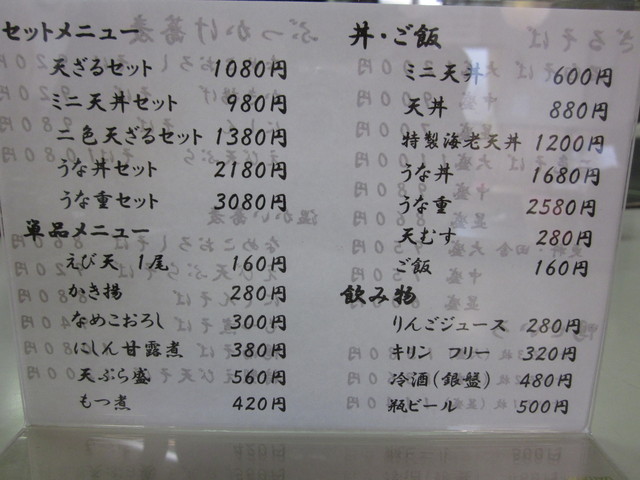 セットメニュー
天ざるセット 1080円
ミニ天丼セット 980円
二色天ざるセット 1380円
うな丼セット 2180円
うな重セット 3080円
単品メニュー
えび天 1尾 160円
かき揚 280円
なめこおろし 300円
にしん甘露煮 380円
天ぷら盛 560円
もつ煮 420円
丼・ご飯
ミニ天丼 600円
天丼 880円
特製海老天丼 1200円
うな丼 1680円
うな重 2580円
天むす 280円
ご飯 160円
飲み物
りんごジュース 280円
キリン フリー 320円
冷酒(銀盤) 480円
瓶ビール 500円